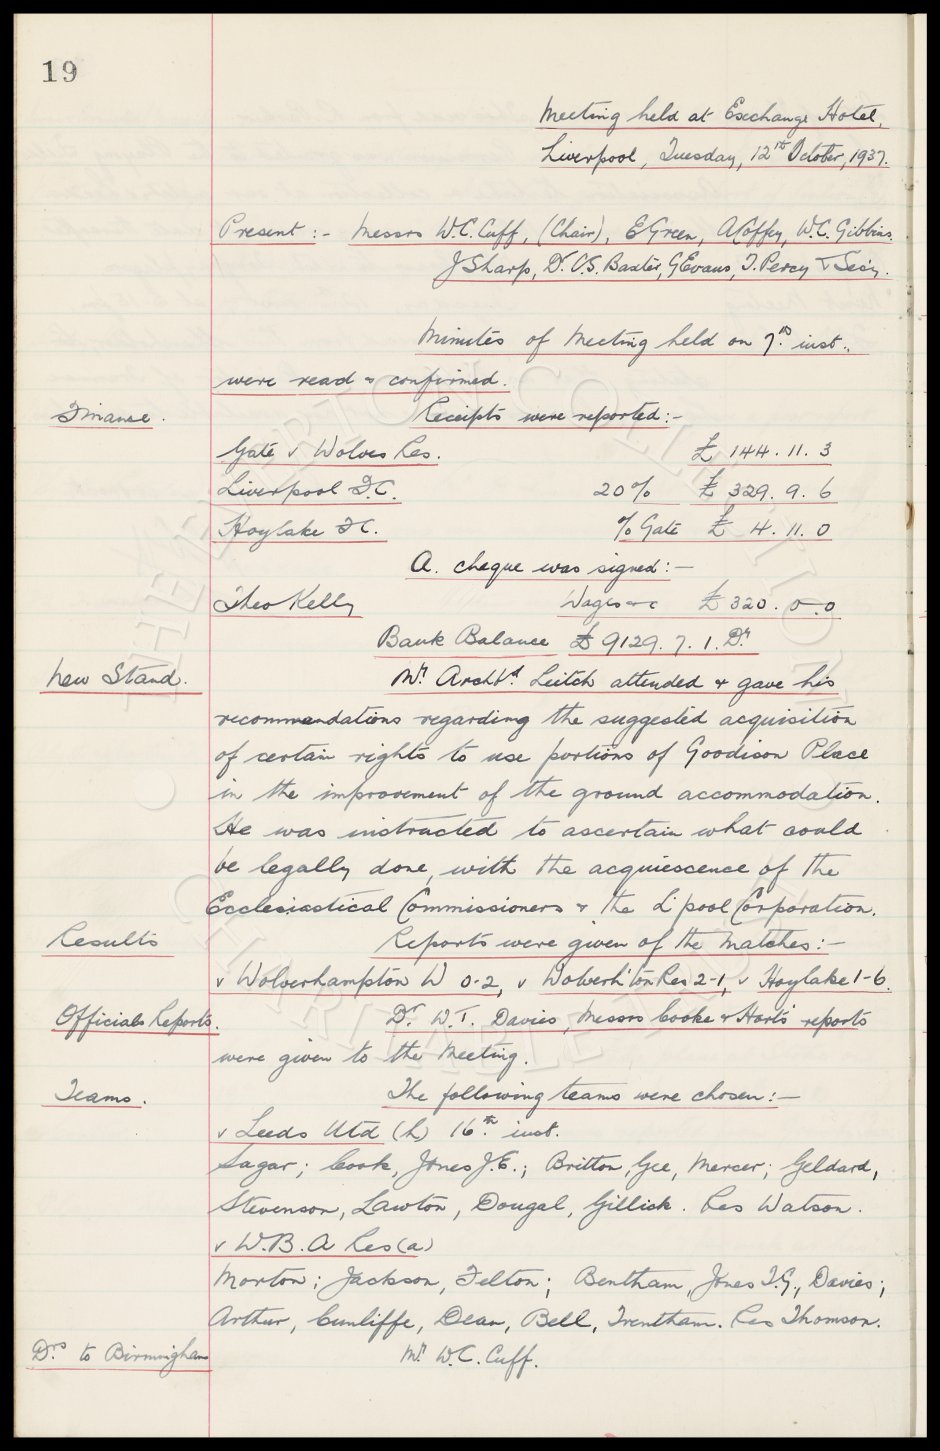 19
Meeting held at Exchange Hotel,
Liverpool, Tuesday, 12th October, 1937.
Present :- Messrs W.C. Cuff, (Chair), E Green, A Coffey, W.C. Gibbins.
J Sharp, Dr C.S. Baxter, G Evans, T. Percy & Sec'y.
Minutes of Meeting held on 7th inst.,
were read & confirmed.
Finance. Receipts were reported:-
Gate v Wolves Res. £ 144. 11. 3
Liverpool F.C. 20% £ 329. 9. 6
Hoylake F C. % Gate £ 4. 11. 0
A. cheque was signed:-
Theo Kelly Wages &c £ 320. 0. 0
Bank Balance £ 9129. 7. 1. Dr
New Stand. Mr. Archbd. Leitch attended & gave his
recommendations regarding the suggested acquisition
of certain rights to use portions of Goodison Place
in the improvement of the ground accommodation.
He was instructed to ascertain what could
be legally done, with the acquiescence of the
Ecclesiastical Commissioners & the L'pool Corporation.
Results Reports were given of the matches:-
v Wolverhampton W 0-2, v Wolverh'ton Res 2-1, v Hoylake 1-6.
Officials Reports. Dr. W.T. Davies, Messrs Cooke & Hart's reports
were given to the Meeting.
Teams. The following teams were chosen:-
v Leeds Utd (h) 16th. inst.
Sagar; Cook, Jones J.E.; Britton, Gee, Mercer; Geldard,
Stevenson, Lawton, Dougal, Gillick. Res Watson.
v W.B.A Res (a)
Morton; Jackson, Felton; Bentham, Jones T.G., Davies;
Arthur, Cunliffe, Dean, Bell, Trentham. Res Thomson.
Drs to Birmingham Mr. W.C. Cuff.
THE EVERTON COLLECTION
CHARITABLE TRUST